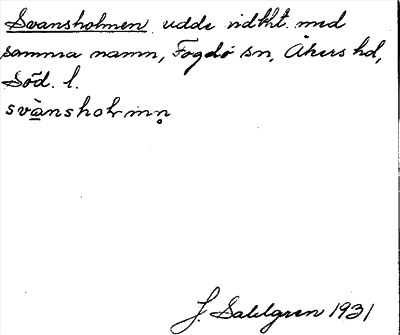 Svansholmen udde vid lht. med
samma namn, Fogdö sn, Åkers hd,
Söd. l.
J. Sahlgren 1931